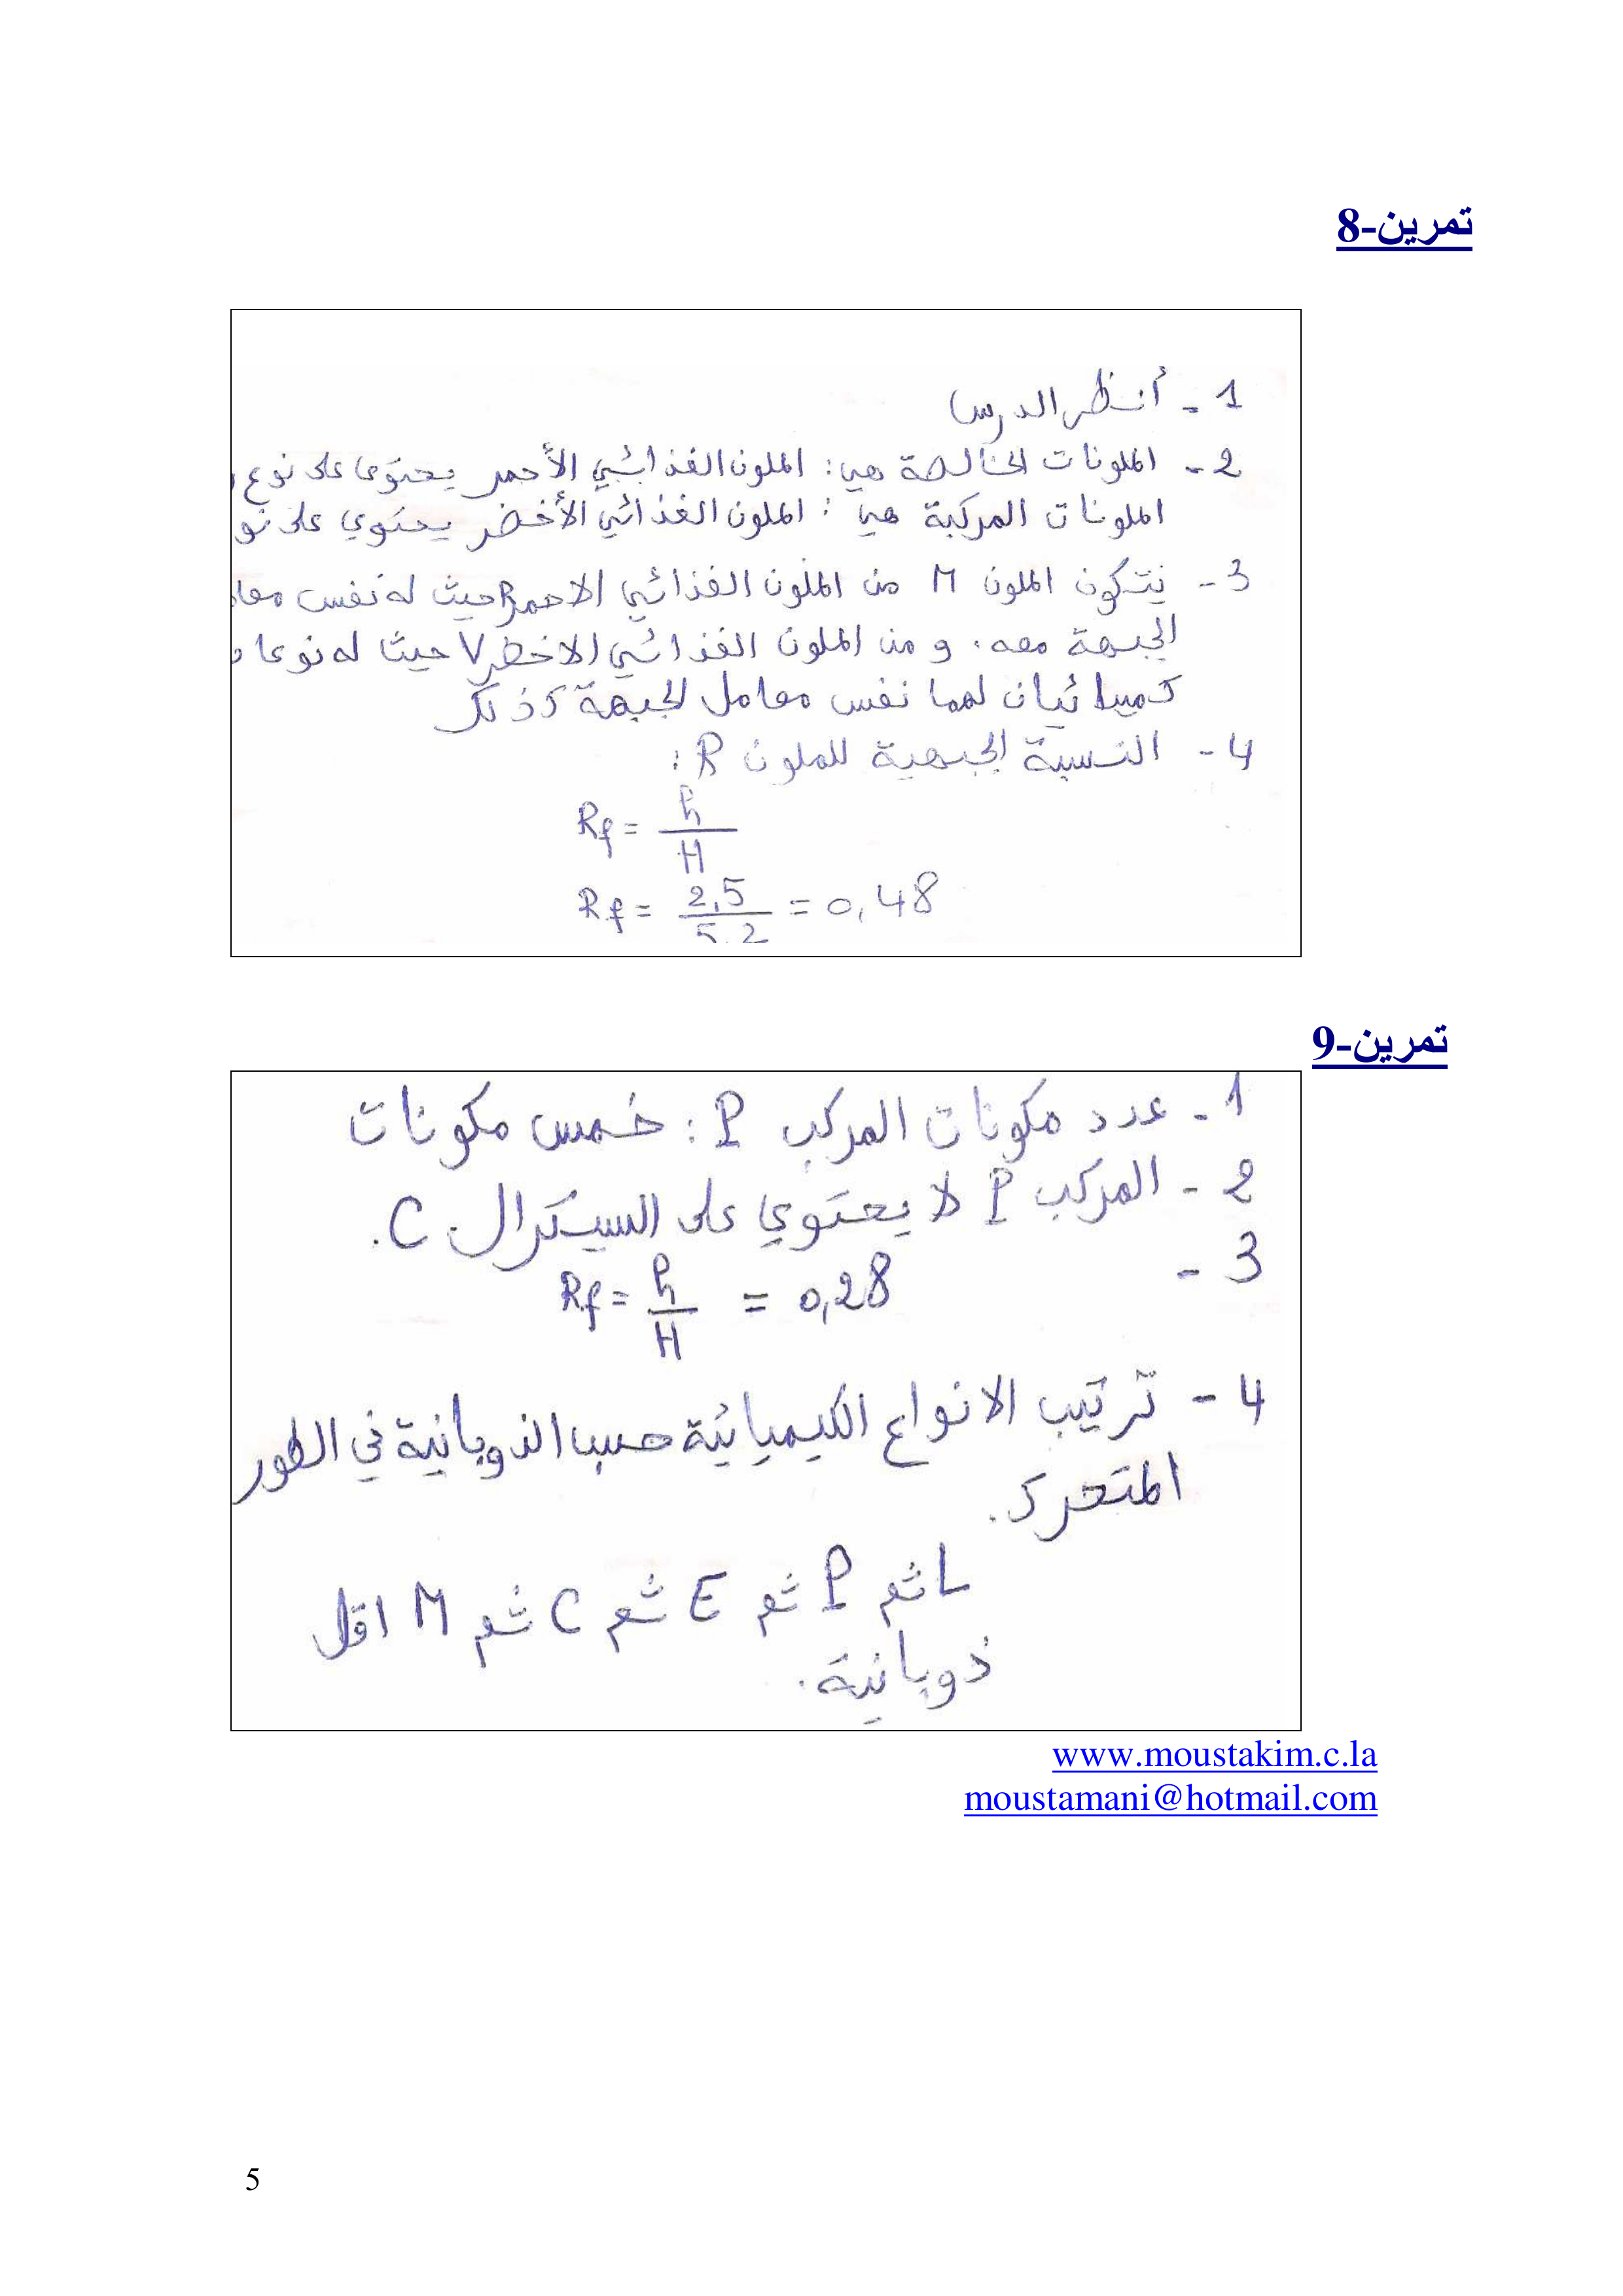 تمرين-8
1 - أنظر الدرس
2 - الملونات الخالصة هي: الملون الغذائي الأحمر يحتوي على نوع
الملونات المركبة هي: الملون الغذائي الأخضر يحتوي على نو
3 - نتكون الملون M من الملون الغذائي الاحمر R حيث له نفس معا
الجبهة معه. و من الملون الغذائي الاخضر V حيث له نوعا
كميائيان لهما نفس معامل الجبهة كذلك
4 - النسبة الجبهية للملون R:
Rf = h/H
Rf = 2,5/5,2 = 0,48
تمرين-9
1 - عدد مكونات المركب P: خمس مكونات
2 - المركب P لا يحتوي على السيكرال C.
3 -
Rf = h/H = 0,28
4 - ترتيب الانواع الكيميائية حسب الذوبانية في الطور
المتحرك.
L ثم P ثم E ثم C ثم M اقل
ذوبانية.
www.moustakim.c.la
moustamani@hotmail.com
5